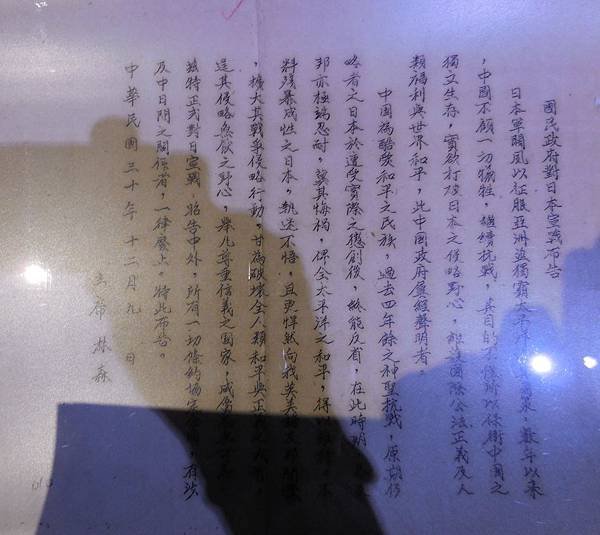 國民政府對日本宣戰布告
日本軍閥夙以征服亞洲並獨霸太平洋 策,數年以來
,中國不顧一切犧牲,繼續抗戰,其目的不僅所以保衛中國之
獨立生存,實欲打破日本之侵略野心,維護國際公法正義及人
類福利與世界和平,此中國政府屢經聲明者。
中國為酷愛和平之民族,過去四年餘之神聖抗戰,原期侵
略者之日本於遭受實際之懲創後,終能反省,在此時期
邦亦極端忍耐,冀其悔禍,俾全太平洋之和平,得以維持,不
料殘暴成性之日本,執迷不悟,且更悍然向我英美諸友邦開釁
,擴大其戰爭侵略行動,甘為破壞全人類和平與正義之戎首,
逞其侵略無厭之野心,舉凡尊重信義之國家,咸屬忍無可忍,
茲特正式對日宣戰,昭告中外,所有一切條約協定合同,有涉
及中日間之關係者,一律廢止,特此布告。
主席 林森
中華民國三十年十二月九日